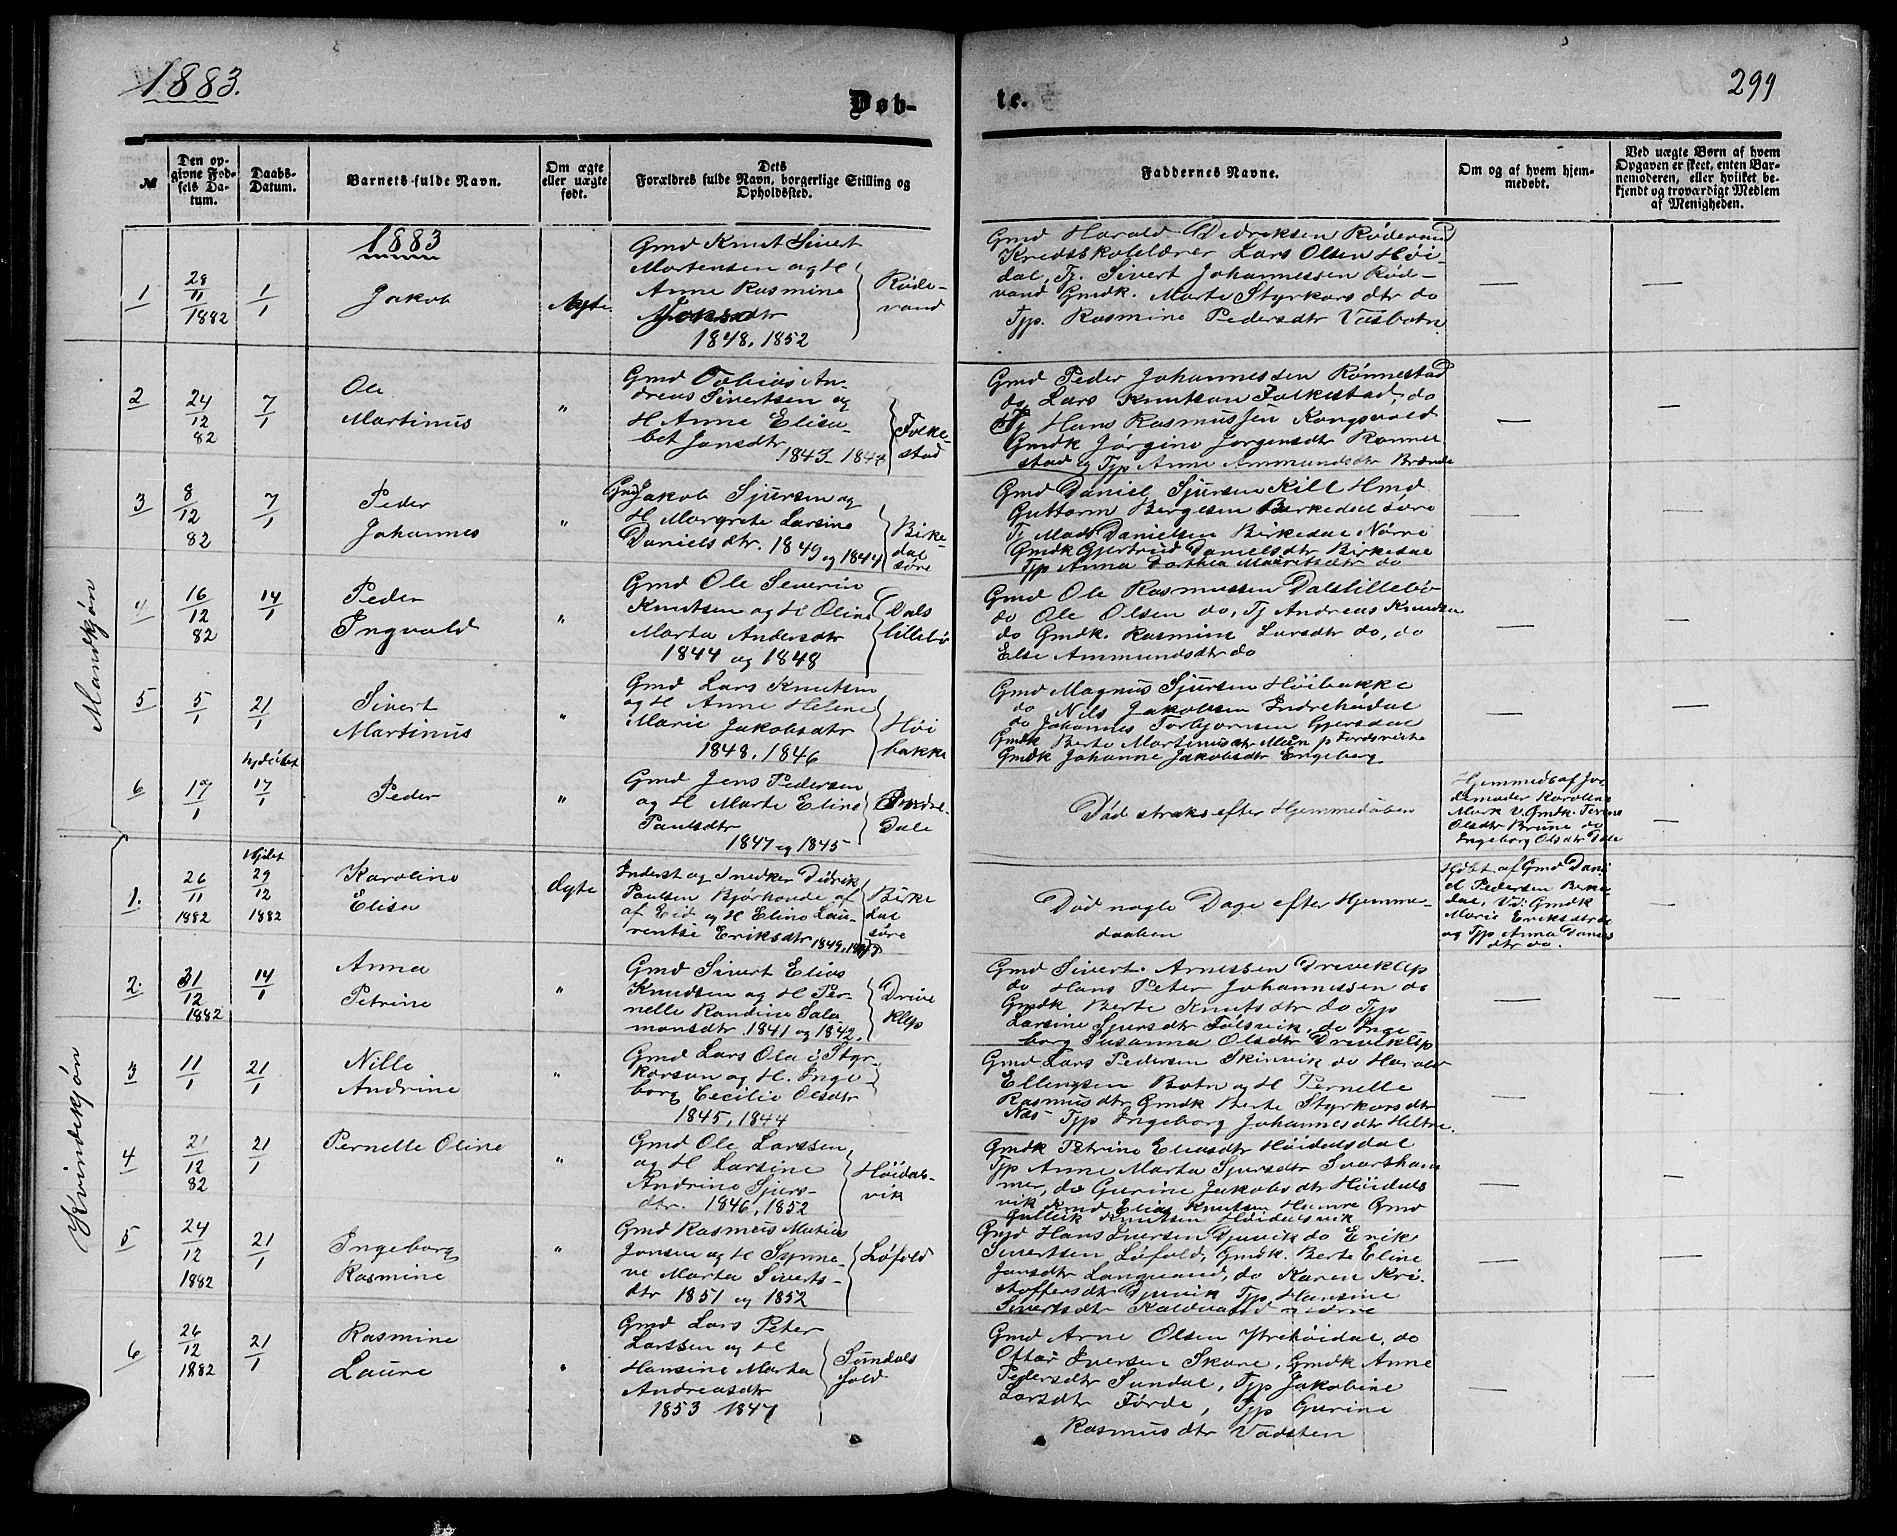 1883.
Døb-
te.
299
№
Den op-
givne Fød-
sels Da-
tum.
Daabs-
Datum.
Barnets fulde Navn.
Om ægte
eller uægte
født.
Dets
Forældres fulde Navn, borgerlige Stilling og
Opholdssted.
Faddernes Navne.
Om og af hvem hjem-
medøbt.
Ved uægte Børn af hvem
Opgaven er skeet, enten Bar-
nemoderen, eller hvilket be-
kjendt og troværdigt Medlem
af Menigheden.
1883
Mandkjøn
1
28/11 1882
1/1
Jakob
Ægte
Gmd Knut Sivert
Mortensen og H
Anne Rasmine
1848, 1852
Røde-
vand
Gmd Harald Didriksen Rødevand
Kredsskolelærer Lars Olsen Høi-
dal, Tj. Sivert Johannessen Rød-
vand Gmdk. Marte Styrkorsdtr do
Tjp. Rasmine Pedersdtr Vasbotn
2
24/12 82
7/1
Ole
Martinus
"
Gmd Tobias An-
dreas Sivertsen og
H Anne Elisa-
bet Jonsdtr
1843-
Folke-
stad
Gmd Peder Johannessen Rønnestad
do Lars Knutson Folkestad, do
Tj Hans Rasmussen Kongsvold
Gmdk Jørgine Jørgensdtr Rønne-
stad og Tjp Anne Ammundsdtr Brænde
3
8/12 82
7/1
Peder
Johannes
"
Gmd Jakob Sjursen og
H Margrete Larsine
Danielsdtr. 1849 og 1844
Birke-
dal
søre
Gmd Daniel Sjursen Kill Hmd
Guttorm Bergesen Birkedal søre
Tj Mads Danielsen Birkedal Nørre
Gmdk Gjertrud Danielsdtr Birkedal
Tjp Anna Dorthea Mauritsdtr do
4
16/12 82
14/1
Peder
Ingvald
"
Gmd Ole Severin
Knutsen og H Oline
Marta Andersdtr
1844 og 1848
Dals
lillebø
Gmd Ole Rasmussen Dalslillebø
do Ole Olsen do, Tj Andreas Knudsen
do Gmdk. Rasmine Larsdtr do, do
Else Ammundsdtr do
5
5/1
21/1
Sivert
Martinus
"
Gmd Lars Knutsen
og H Anne Helene
Marie Jakobsdtr
1848, 1846
Høi
bakke
Gmd Magnus Sjursen Høibakke
do Nils Jakobsen Indrehøidal
do Johannes Torbjørnsen Gjersdal
Gmdk Berte Martinusdtr
Gmdk Johanne Jakobsdtr Engeberg
6
17/1
hjdøbt
17/1
Peder
"
Gmd Jens Pedersen
og H Marte Eline
Paulsdtr
1847 og 1845
Indre-
Dale
Død straks efter Hjemmedøben
Hjemmeds af Jor
demoder Karoline
Mork V. Gmdk.
Olsdtr Brune do
Ingeborg Olsdtr Dale
Kvindekjøn
1.
26/11 1882
Hjdbt
29/12 1882
Karoline
Elisa
Ægte
Inderst og Snedker Didrik
Paulsen Bjørhovde af
af Eid og H Eline Lau-
rentse Eriksdtr 1849,
Birke
dal
søre
Død nogle Dage efter Hjemme-
daaben
Hjdbt af Gmd Dani
el Pedersen Birke
dal, Vid: Gmdk
Marie Eriksdtr do
og Tjp Anna Daniels
dtr do.
2.
31/12 1882
14/1
Anna
Petrine
"
Gmd Sivert Elias
Knudsen og H Per-
nelle Randine Salo
monsdtr. 1841 og 1842.
Drive
klep
Gmd Sivert Arnessen Driveklep
do Hans Peter Johannessen do
Gmdk Berte Knutsdtr do Tjp
Larsine Sjursdtr Følsvik, do Inge-
borg Susanna Olsdtr Driveklep
3
11/1
21/1
Nille
Andrine
"
Gmd Lars Olai Styr-
korson og H. Inge
borg Cecilie Olsdtr
1845, 1844
Gmd Lars Pedersen Skinvik do Harald
Ellingsen Botn og H Pernelle
Rasmusdtr Gmdk Berte Styrkorsdtr
Næs Tjp Ingeborg Johannesdtr Heltne.
4
21/12 82
21/1
Pernelle Oline
"
Gmd Ole Larssen
og H Larsine
Andrine Sjurs-
dtr. 1846, 1852
Høidals-
vik
Gmdk Petrine Eliasdtr Høidalsdal
Tjp Anne Marta Sjursdtr Svartham
mer, do Gurine Jakobsdtr Høidals
vik Gmd Elias Knutsen Humre Gmd
Gullik Knutsen Høidalsvik
5
24/12 1882
21/1
Ingeborg
Rasmine
"
Gmd Rasmus Matias
Jonsen og H Synne-
ve Marta Siverts-
dtr 1851 og 1852
Løfold
Gmd Hans Iversen Djuvik do Erik
Sivertsen Løfold, Gmdk. Berte Eline
Jonsdtr Langvand, do Karen Kri-
stoffersdtr Djuvik Tjp Hansine
Sivertsdtr Koldevand
6
26/12 1882
21/1
Rasmine
Laure
"
Gmd Lars Peter
Larssen og H
Hansine Marta
Andreasdtr
1853 1847
Sundals
fold
Gmd Arne Olsen Ytrehøidal, do
Ottar Iversen Skare, Gmdk Anne
Pedersdtr Sundal, Tjp Jakobine
Larsdtr Førde, Tjp Gurine
Rasmusdtr Vadsten